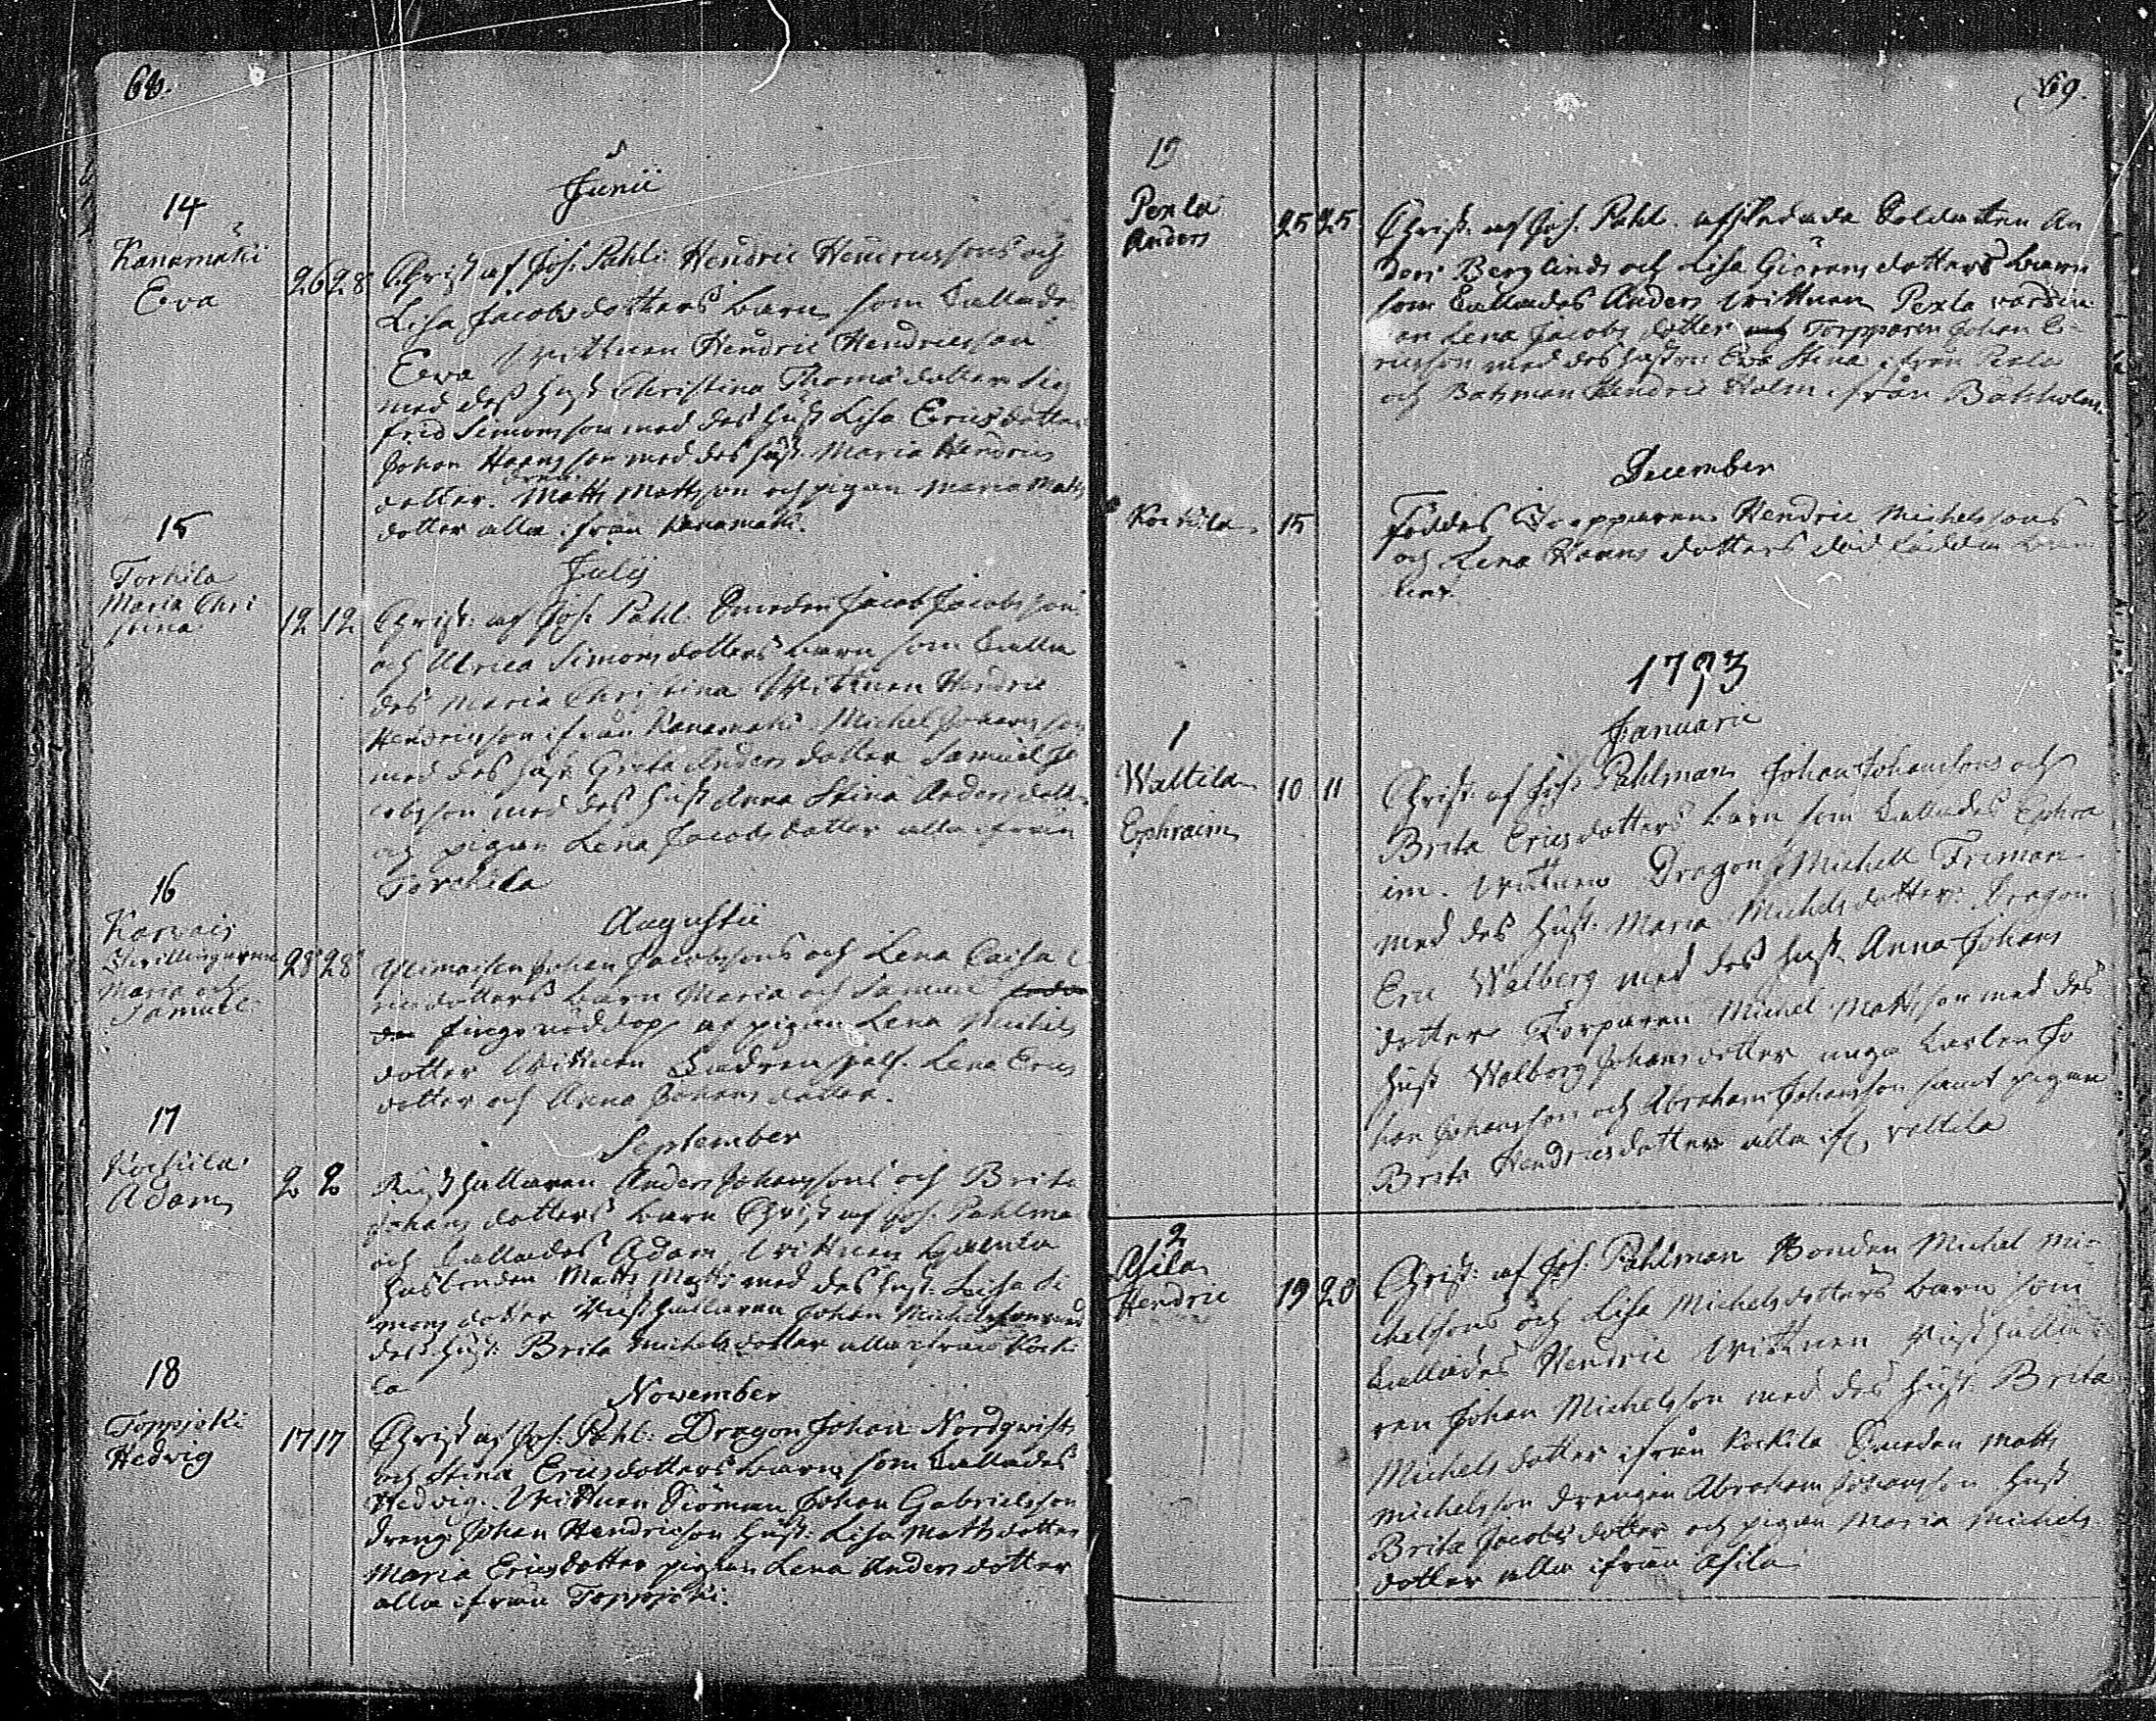 68.
Junii
14
Kanamäki
Eva
26 28
Christ af Joh. Pahl: Hendric Henricssons och
Lisa Jacobsdotters barn som kallade
Eva Wittnen Hendric Hendricsson
med dess hust Christina Thomædotter Sig
frid Simonsson med des hust Lisa Ericsdotter
Johan Hansson med des hust. Maria Hendrics
dotter. dräng Matts Mattsson och pigan Maria Matts
dotter alla ifrån Kanamäki.
July
15
Torkila
Maria Chri
stina
12 12
Christ. af Joh. Pahl. Smeden Jacob Jacobsson
och Ulrica Simonsdotters barn som kalla
des Maria Christina Wittnen Hendric
Hendricsson ifrån Kanamäki Michel Johansson
med des hust Greta Andersdotter Samuel Ja
cobsson med des hust Anna Stina Andersdotter
och pigan Lena Jacobsdotter alla ifrån
Torckila
Augustii
16
Karvais
Maria och
Samuel
28 28
Johan Jacobssons och Lena Caisa
dotters barn Maria och Samuel
fingo nöddop af pigan Lena Michels
dotter Wittnen fadren sjelf. Lena Erics
dotter och Anna Johansdotter.
September
17
Kockila
Adam
2 2
Rusthållaren Anders Johanssons och Brita
Johansdotters barn Christ af Joh. Pahlma
och kallades Adam Wittnen
husbonden Matts Matts: med des hust. Lisa Si
monsdotter Rusthållaren Johan Michelsson med
des hust. Brita Michelsdotter alla ifrån Kocki
la
November
18
Toppjoki
Hedvig
17 17
Christ af Joh. Pahl: Dragon Johan Nordqwists
och Stina Ericsdotters barn som kallades
Hedvig. Wittnen Siöman Johan Gabrielsson
dreng Johan Hendricsson hust. Lisa Mattsdotter
Maria Ericsdotter pigan Lena Andersdotter
alla ifrån Toppjoki.
69.
19
Pexla
Anders
25 25
Christ. af Joh. Pahl. afskedade Soldaten An
ders Berglinds och Lisa Giöransdotters barn
som kallades Anders Wittnen Pexla värdin
an Lena Jacobs dotter och Torpparen Johan E-
ricsson med des hustru Eva Stina ifrån Pexla
och Båtsman Hendric Holm ifrån Båtsholm.
December
Kockila
15
Föddes Torpparen Hendric Michelssons
och Lena Hansdotters död födda barn

1793
Januarii
1
Waltila
Ephraim
10 11
Christ. af Joh Pahlman Johan Johanssons och
Brita Ericsdotters barn som kallades Ephra
im. Wittnen Dragon Michell Friman
med des hust. Maria Michelsdotter. Dragon
Eric Walberg med des hust. Anna Johans
dotter Torparen Michel Mattsson med des
hust Walborg Johansdotter unga karlen Jo
han Johansson och Abraham Johansson samt pigan
Brita Hendricsdotter alla if. valtila
2
Asila
Hendric
19 20
Christ. af Joh. Pahlman Bonden Michel Mi-
chelsons och Lisa Michelsdotters barn som
kallades Hendric Wittnen Rusthålla
ren Johan Michelsson med des hust Brita
Michelsdotter ifrån Kockila Smeden Matts
Michelsson drengen Abraham Johansson hust
Brita Jacobsdotter och pigan Maria Michels
dotter alla ifrån Asila